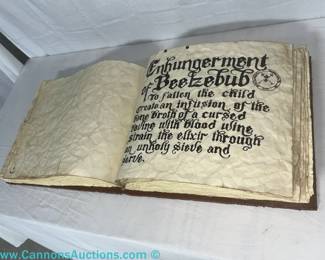 Enhungerment
of Beelzebub
To fallen the child
create an infusion of the
bone broth of a cursed
bovine with blood wine
strain the elixir through
an unholy sieve and
serve.
www.CannonsAuctions.com ©